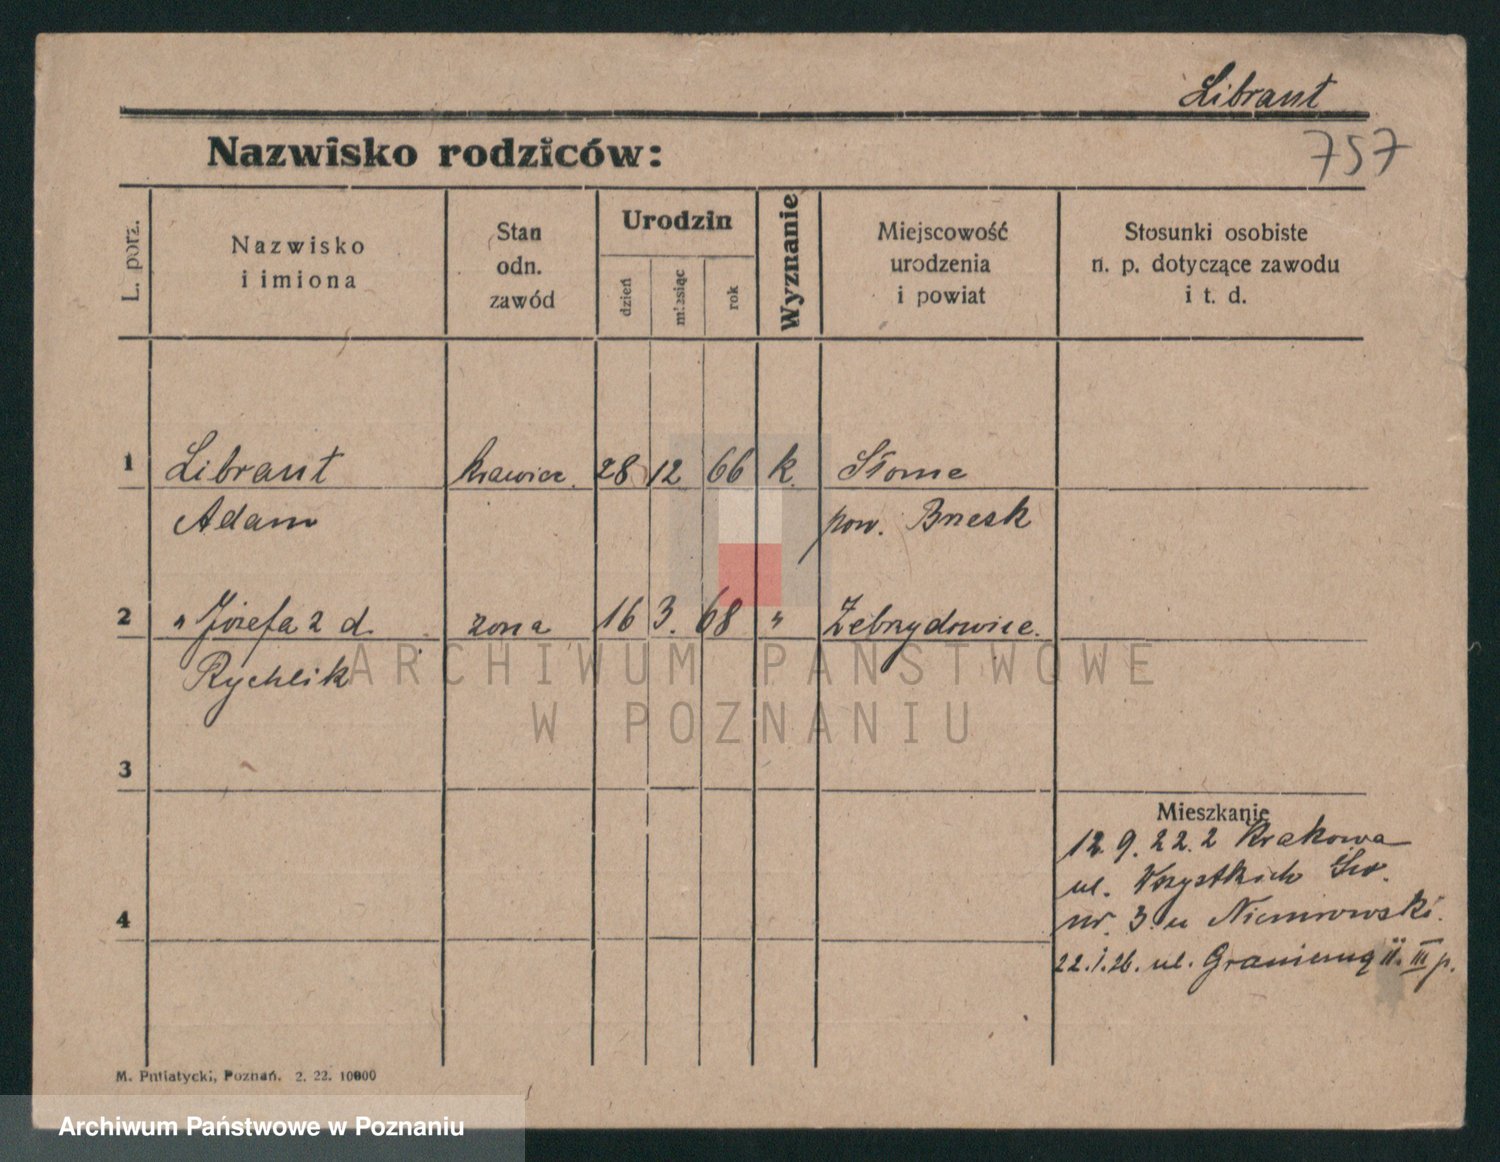 Librant
Nazwisko rodziców:
757
L. porz.
Nazwisko
i imiona
Stan
odn.
zawód
Urodzin
dzień
miesiąc
rok
Wyznanie
Miejscowość
urodzenia
i powiat
Stosunki osobiste
n. p. dotyczące zawodu
i t. d.
1 Librant krawiec. 28 12 66 k. Słone
Adam pow. Brzesk
2 " Józefa 2 d. żona 16 3. 68 " Zebrzydowice.
Rychlik
ARCHIWUM PAŃSTWOWE
W POZNANIU
3
Mieszkanie
12. 9. 22. z Krakowa
ul. Wszystkich Św.
4
nr. 3. u Niemrowski.
22.1.26. ul. III p.
M. Putiatycki, Poznań. 2. 22. 10000
Archiwum Państwowe w Poznaniu